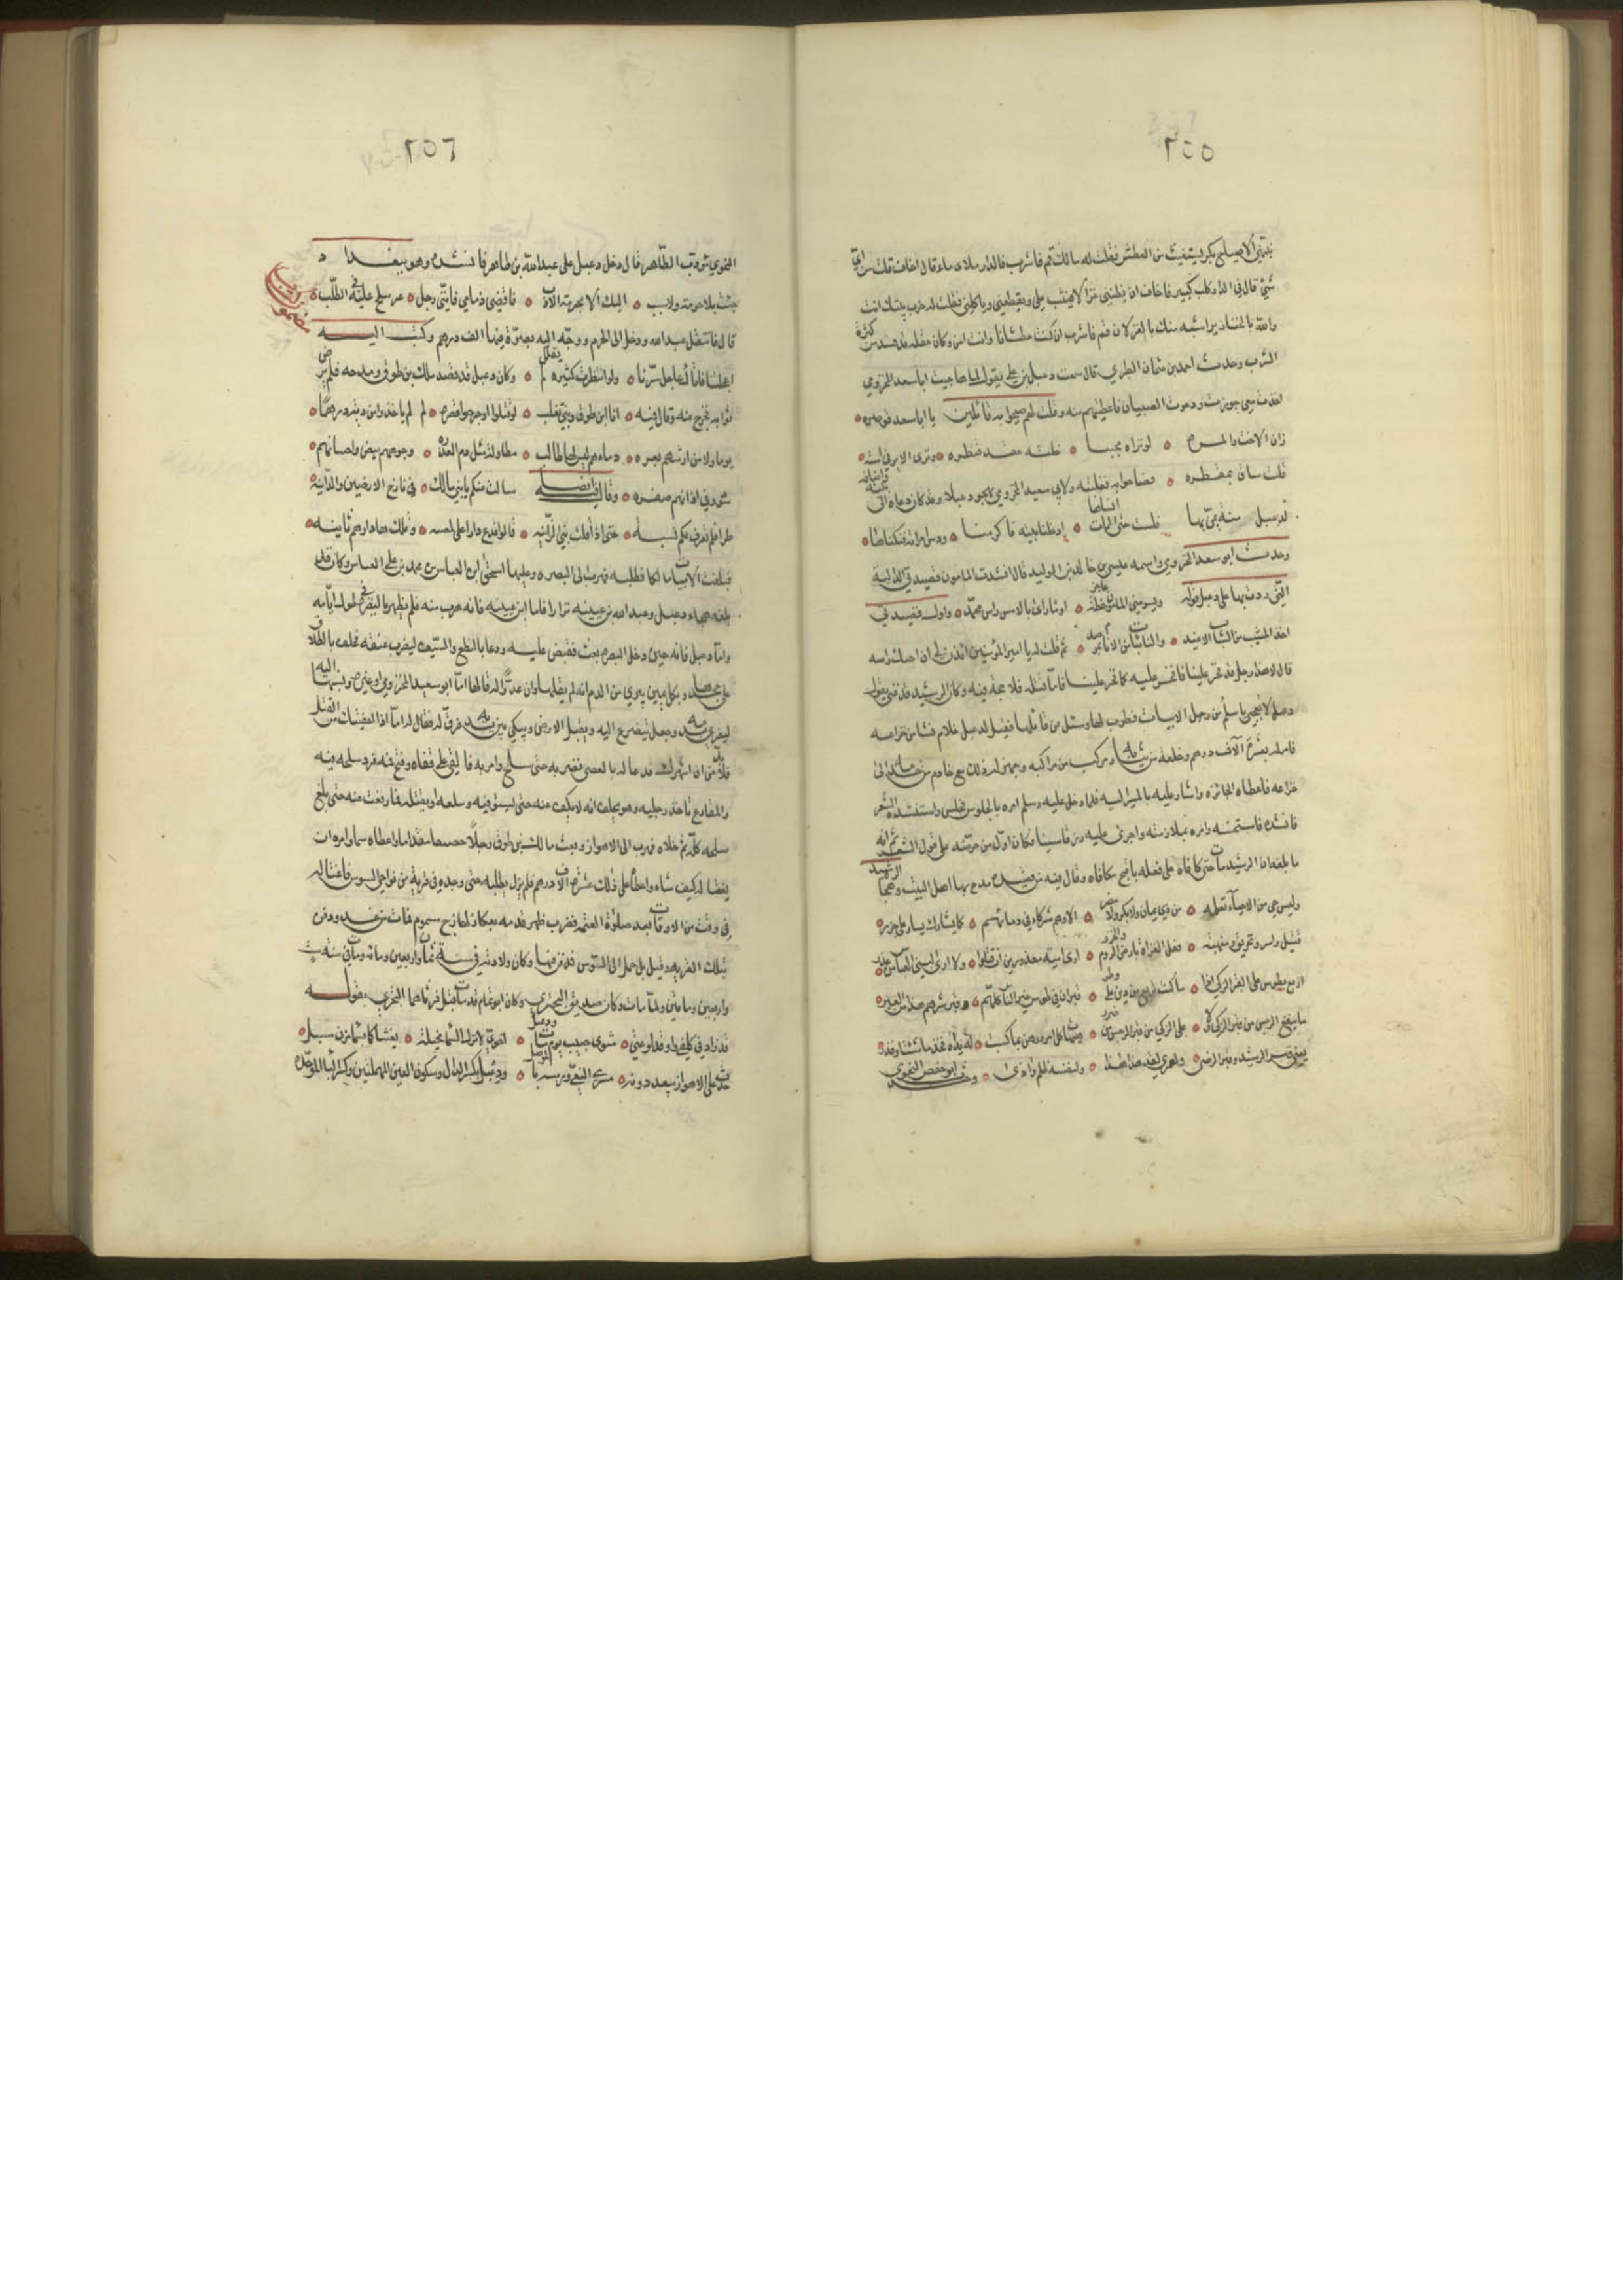 ٢٥٥
شئ قال في الدار كلب كبير فاخاف ان يظنني غزالا
والله بالخنازير اشبه منك بالغزلان قم فاشرب ان كنت عطشانا وانت امن وكان عقله قد ذهب من كثرة
الشرب وحدث احمد بن عثمان الطبري قال سمعت دعبل بن علي يقول لما هاجيت ابا سعد المخزومي
اخذت معي جوزا ودعوت الصبيان فاعطيتهم منه وقلت لهم صيحوا به قائلين يا ابا سعد قوصره
زان الاخت والمره لو تراه مجببا خلته عقد قنطره وترى الاير في استه
قلت ساق بمقطره فصاحوا به فغلبته ولابي سعيد المخزومي يهجو دعبلا وقد كان دعاه الى
لدعبل منة يمن بها فلست حتى الممات انساها ادخلنا بيته فاكرمنا ودس امراته فنكناها
وحدث ابو سعد المخزومي واسمه عيسى بن خالد بن الوليد قال انشدت المامون قصيدتي الدالية
التي رددت بها على دعبل قوله ويسومني المامون خطة عاجز اوما راى بالامس راس محمد واول قصيدتي
اخذ المشيب من الشباب الاغيد والنائبات من الانام بمرصد ثم قلت له يا امير المؤمنين ائذن لي ان اجيئك براسه
قال لا هذا رجل قد فخر علينا فافخر عليه كما فخر علينا فاما قتله فلا حجة فيه وكان الرشيد قد غني بقول
دعبل لا تعجبي يا سلم من رجل الابيات فطرب لها وسئل عن قائلها فقيل لدعبل غلام نشا من خزاعه
فامر له بعشرة الاف درهم وخلعة من ثيابه ومركب من مراكبه وجهز له ذلك مع خادم من خدمه الى
خزاعه فاعطاه الجائزه واشار عليه بالمسير اليه فلما دخل عليه وسلم امره بالجلوس فجلس واستنشده الشعر
فانشده فاستحسنه وامره بملازمته واجرى عليه رزقا سنيا فكان اول من حرضه على قول الشعر ثم انه
ما بلغه ان الرشيد مات حتى كافاه على فعله باقبح مكافاه وقال فيه من قصيدة مدح بها اهل البيت وهجا الرشيد
وليس حي من الاحياء نعلمه من ذي يمان ولا بكر ولا مضر الا وهم شركاء في دمائهم كما يشارك ايسار على جزر
قتل واسر وتحريق ومنهبة فعل الغزاة بارض الروم والخزر ارى امية معذورين ان قتلوا ولا ارى لبني العباس من عذر
اربع بطوس على القبر الزكي اذا ما كنت تربع من دين على وطر قبران في طوس خير الناس كلهم وقبر شرهم هذا من العبر
ما ينفع الرجس من قرب الزكي ولا على الزكي بقرب الرجس من ضرر
يعني قبر الرشيد وقبر الرضى
وحدث ابو حفص النحوي
٢٥٦
النحوي مؤدب ال طاهر قال دخل دعبل على عبد الله بن طاهر فانشده وهو ببغداد
جئت بلا حرمة ولا سبب اليك الا بحرمة الادب فاقض ذمامي فانني رجل غير ملح عليك في الطلب
قال فانتعل عبد الله ودخل الى الحرم ووجه اليه بصرة فيها الف درهم وكتب اليه
اعجلتنا فاتاك عاجل برنا ولو انتظرت كثيره لم يقلل وكان دعبل قد قصد مالك بن طوق ومدحه فلم يرض
ثوابه فخرج عنه وقال فيه ان ابن طوق وبني تغلب لو قتلوا او جرحوا قصره لم ياخذوا من دية درهما
يوما ولا من ارشهم بعره دماءهم ليس لها طالب مطلولة مثل دم العذره وجوههم بيض واحسابهم
سود وفي اذانهم صفره وقال فيه ايضا سالت عنكم يا بني مالك في نازح الارضين والدانية
طرا فلم تعرف لكم نسبة حتى اذا قلت بني الزانيه قالوا فدع دارا على يمنه وتلك ها دارهم ثانيه
فبلغت الابيات مالكا فطلبه فهرب الى البصره وعليها اسحق بن العباس بن محمد بن علي العباسي وكان قد
بلغه هجاء دعبل وعبد الله بن عيينه نزارا فاما ابن عيينه فانه هرب منه فلم يظهر بالبصرة طول ايامه
واما دعبل فانه حين دخل البصره بعث فقبض عليه ودعا بالنطع والسيف ليضرب عنقه فحلف بالطلاق
على جحدها وبكل يمين يبرئ من الدم انه لم يقلها وان عدوا له قالها اما ابو سعيد المخزومي او غيره ونسبها اليه
ليغري بدمه وجعل يتضرع اليه ويقبل الارض ويبكي بين يديه فرق له فقال له اما اذا اعفيتك من القتل
فلا بد من ان اشهرك فدعا له بالعصي فضربه حتى سلح وامر به فالقي على قفاه وفتح فمه فرد سلحه فيه
والمقارع تاخذ رجليه وهو يحلف انه لا يكف عنه حتى يستوفيه ويبلعه او يقتله فما رفعت عنه حتى بلغ
سلحه كله ثم خلاه فهرب الى الاهواز وبعث مالك بن طوق رجلا حصيفا مقداما واعطاه سما وامره ان
يغتاله كيف شاء واعطاه على ذلك عشرة الاف درهم فلم يزل يطلبه حتى وجده في قرية من نواحي السوس فاغتاله
في وقت من الاوقات بعد صلوة العتمه فضرب ظهر قدمه بعكاز لها زج مسموم فمات من غد ودفن
بتلك القرية وقيل بل حمل الى السوس فدفن فيها وكان ولادته في سنة ثمان واربعين ومائه ومات في سنة ست
واربعين ومايتين ولما مات وكان صديق البحتري وكان ابو تمام قد مات قبله فرثاهما البحتري بقوله
قد زاد في كلفي واوقد لوعتي مثوى حبيب يوم مات ودعبل اخوي لا تزل السماء مخيلة تغشاكما بسماء مزن مسبل
جدث على الاهواز يبعد دونه مسرى النعي ورمسه بالموصل ودعبل بكسر الدال وسكون العين المهملتين وكسر الباء الموحده